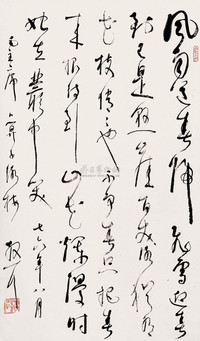 風雨送春歸飛雪迎春
到已是懸崖百丈冰猶有
花枝俏俏也不爭春只把春
來報待到山花爛漫時
她在叢中笑 七六年八月
毛主席卜算子咏梅